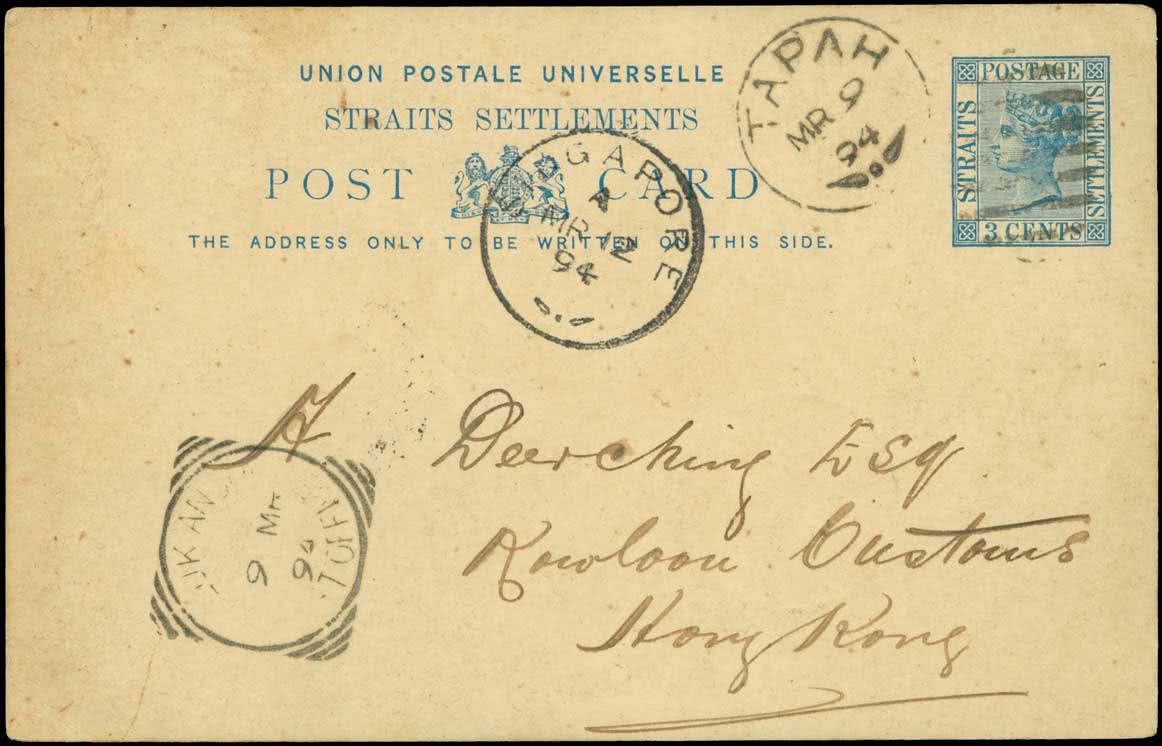 UNION POSTALE UNIVERSELLE
STRAITS SETTLEMENTS
POST CARD
THE ADDRESS ONLY TO BE WRITTEN ON THIS SIDE.
TAPAH
MR 9
94
POSTAGE
STRAITS
SETTLEMENTS
3 CENTS
SINGAPORE
MR 12
94
A Deerching Esq
Kowloon Customs
Hong Kong
9 MR
94